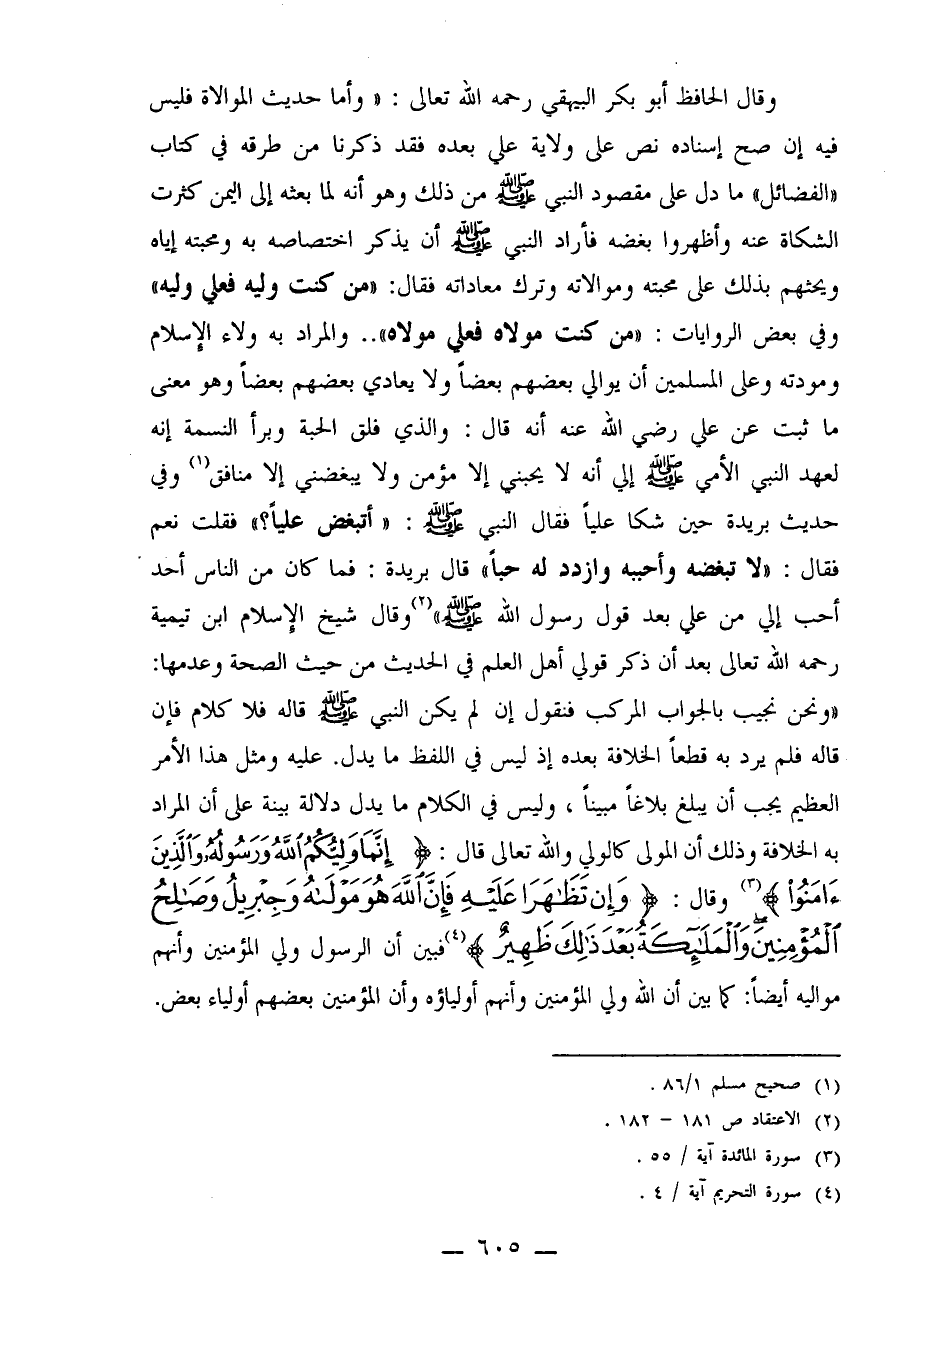 وقال الحافظ أبو بكر البيهقي رحمه الله تعالى : « وأما حديث الموالاة فليس
فيه إن صح إسناده نص على ولاية علي بعده فقد ذكرنا من طرقه في كتاب
«الفضائل» ما دل على مقصود النبي ﷺ من ذلك وهو أنه لما بعثه إلى اليمن كثرت
الشكاة عنه وأظهروا بغضه فأراد النبي ﷺ أن يذكر اختصاصه به ومحبته إياه
ويحثهم بذلك على محبته وموالاته وترك معاداته فقال: «من كنت وليه فعلي وليه»
وفي بعض الروايات : «من كنت مولاه فعلي مولاه».. والمراد به ولاء الإسلام
ومودته وعلى المسلمين أن يوالي بعضهم بعضاً ولا يعادي بعضهم بعضاً وهو معنى
ما ثبت عن علي رضي الله عنه أنه قال : والذي فلق الحبة وبرأ النسمة إنه
لعهد النبي الأمي ﷺ إلي أنه لا يحبني إلا مؤمن ولا يبغضني إلا منافق(١) وفي
حديث بريدة حين شكا علياً فقال النبي ﷺ : « أتبغض علياً؟» فقلت نعم
فقال : «لا تبغضه وأحببه وازدد له حباً» قال بريدة : فما كان من الناس أحد
أحب إلي من علي بعد قول رسول الله ﷺ»(٢) وقال شيخ الإسلام ابن تيمية
رحمه الله تعالى بعد أن ذكر قولي أهل العلم في الحديث من حيث الصحة وعدمها:
«ونحن نجيب بالجواب المركب فنقول إن لم يكن النبي ﷺ قاله فلا كلام فإن
قاله فلم يرد به قطعاً الخلافة بعده إذ ليس في اللفظ ما يدل. عليه ومثل هذا الأمر
العظيم يجب أن يبلغ بلاغاً مبيناً ، وليس في الكلام ما يدل دلالة بينة على أن المراد
به الخلافة وذلك أن المولى كالولي والله تعالى قال : ﴿ إِنَّمَا وَلِيُّكُمُ ٱللَّهُ وَرَسُولُهُۥ وَٱلَّذِينَ
ءَامَنُوا۟ ﴾(٣) وقال : ﴿ وَإِن تَظَٰهَرَا عَلَيْهِ فَإِنَّ ٱللَّهَ هُوَ مَوْلَىٰهُ وَجِبْرِيلُ وَصَٰلِحُ
ٱلْمُؤْمِنِينَ ۖ وَٱلْمَلَٰٓئِكَةُ بَعْدَ ذَٰلِكَ ظَهِيرٌ ﴾(٤) فبين أن الرسول ولي المؤمنين وأنهم
مواليه أيضاً: كما بين أن الله ولي المؤمنين وأنهم أولياؤه وأن المؤمنين بعضهم أولياء بعض.
(١) صحيح مسلم ٨٦/١ .
(٢) الاعتقاد ص ١٨١ – ١٨٢ .
(٣) سورة المائدة آية / ٥٥ .
(٤) سورة التحريم آية / ٤ .
— ٦٠٥ —